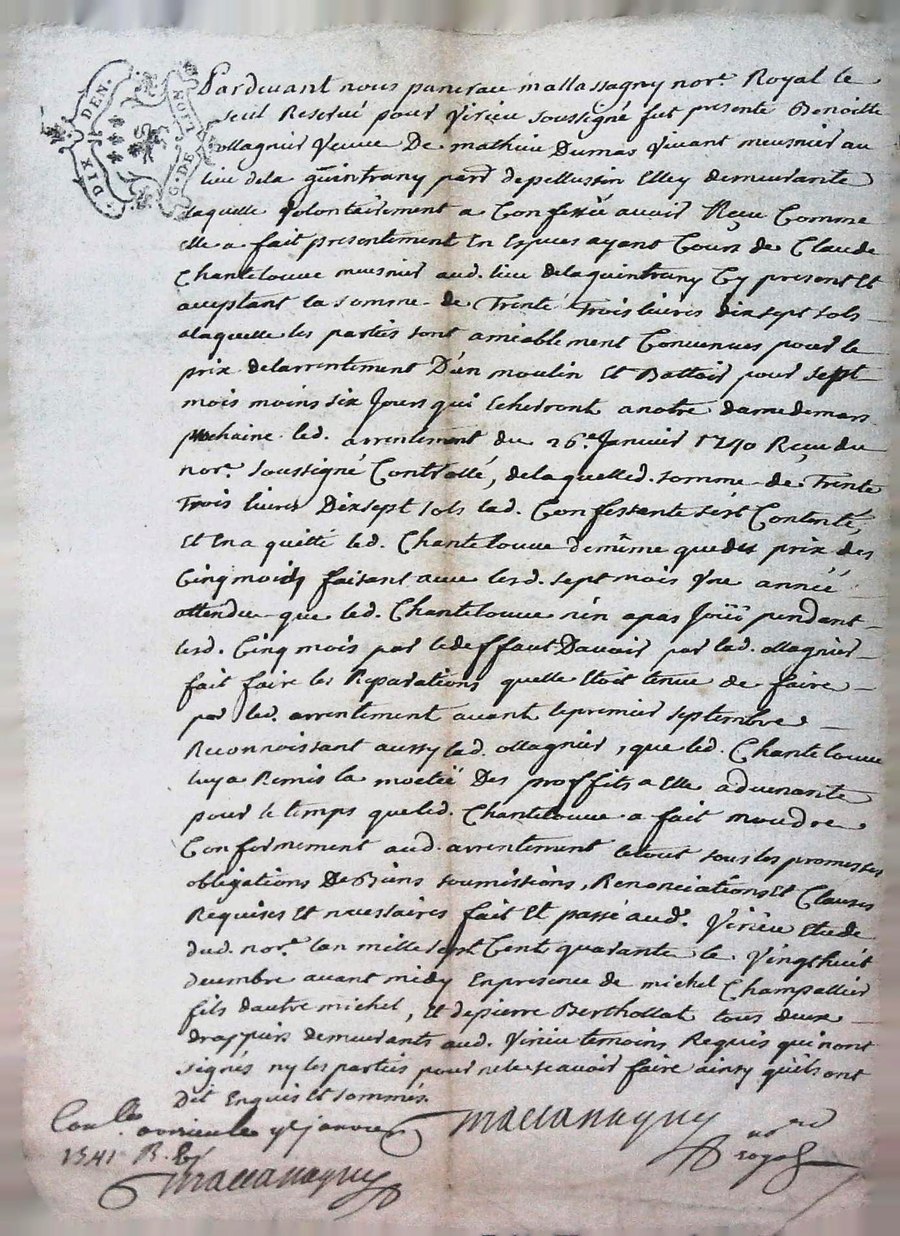 DIX DEN. G. DE LION
Pardevant nous pancrau mallassagny norE. Royal le
seul Reservé pour Virieu soussigné fut presente Benoitte
ollagnier Veuve De mathieu Dumas Vivant meusnier au
lieu dela quintrany parr depellussin Elley demeurante
laquelle Volontairement a Confessée avoir Reçeu Comme
elle a fait presentement En Especes ayant Cours de Claude
Chantelouve meusnier aud. lieu delaquintrany Cy present Et
aceptant la somme de Trente Trois livres dix sept sols
alaquelle les parties sont amiablement Convenues pour le
prix delarrentement D'un moulin Et Battoir pour sept
mois moins six Jours qui Echeront a notre dame de mars
prochaine led. arrentement du 26e. Janvier 1740 Reçeu du
norE. soussigné Controllé, delaquelled. somme de Trente
Trois livres Dixsept sols lad. Confessante s'est Contente,
Et En a quitté led. Chantelouve demême que du prix des
Cinq mois faisant avec lesd. sept mois Vne année
attendu que led. Chantelouve n'en apas Joüi pendant
lesd. Cinq mois par ledeffaut D'avoir par lad. ollagnier
fait faire les Reparations quelle Etoit tenue de faire
par led. arrentement avant lepremier septembre
Reconnoissant aussy lad. ollagnier, que led. Chantelouve
luya Remis la moetié Des proffits a Elle advenante
pour le temps queled. Chantelouve a fait moudre
Conformement aud. arrentement letout sous les promesses
obligations De Biens soumissions, Renonciations Et Clauses
Requises Et necessaires fait Et passé aud. Virieu Etude
dud. norE. lan mille sept Cent quarante le Vingthuit
decembre avant midy En presence de michel Champallier
fils dautre michel, Et depierre Berthollat tous deux
drappiers demeurants aud. Virieu temoins Requis qui n'ont
signés ny les parties pour nele sçavoir faire ainsy qu'ils ont
Dit Enquis et sommés.
Conlle. le ye janvier
1741 R.